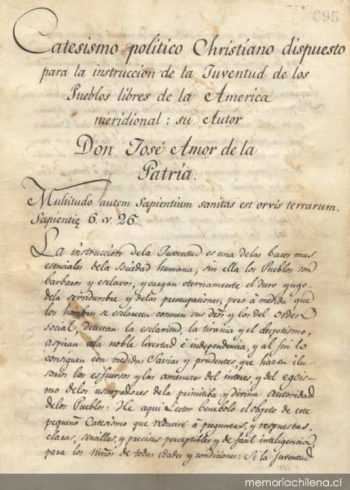 695
Catesismo político Christiano dispuesto
para la instruccion de la Juventud de los
Pueblos libres de la America
meridional: su Autor
Don José Amor de la
Patria.
Multitudo autem Sapientium sanitas est orvis terrarum.
Sapientię 6. v. 26.
La instruccion dela Juventud es una delas bases mas
esenciales dela sociedad humana, sin ella los Pueblos son
barbaros y esclavos, y cargan eternamente el duro yugo
dela servidumbre y delas preocupaciones; pero á medida que
los hombres se esclarecen conocen sus dros y los del orden
social, detestan la esclavitud, la tiranía y el despotismo,
aspiran ála noble livertad é independencia, y al fin lo
consiguen con medidas savias y prudentes que hacen ilu-
sorios los esfuersos y las amenazas del interes, y del egois-
mo delos usurpadores dela primitiba, y divina autoridad
delos Pueblos: He aqui Lector benebolo el objeto de este
pequeño Catesismo que reduciré á preguntas, y respuestas,
claras, sencillas, y precisas perceptibles y de fácil inteligencia
para los niños de todas edades y condiciones: Si la Juventud
memoriachilena.cl